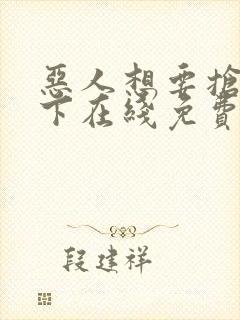 惡人想要搶
下在綫免費
段建祥